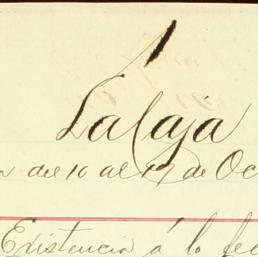 La Caja
del 10 al 17 de Oc
Existencia á la fec